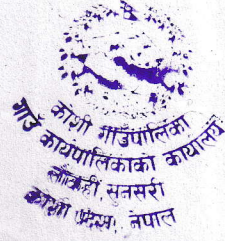 कोशी गाउँपालिका
गाउँ कार्यपालिकाको कार्यालय
लौकही सुनसरी
कोशी प्रदेश, नेपाल